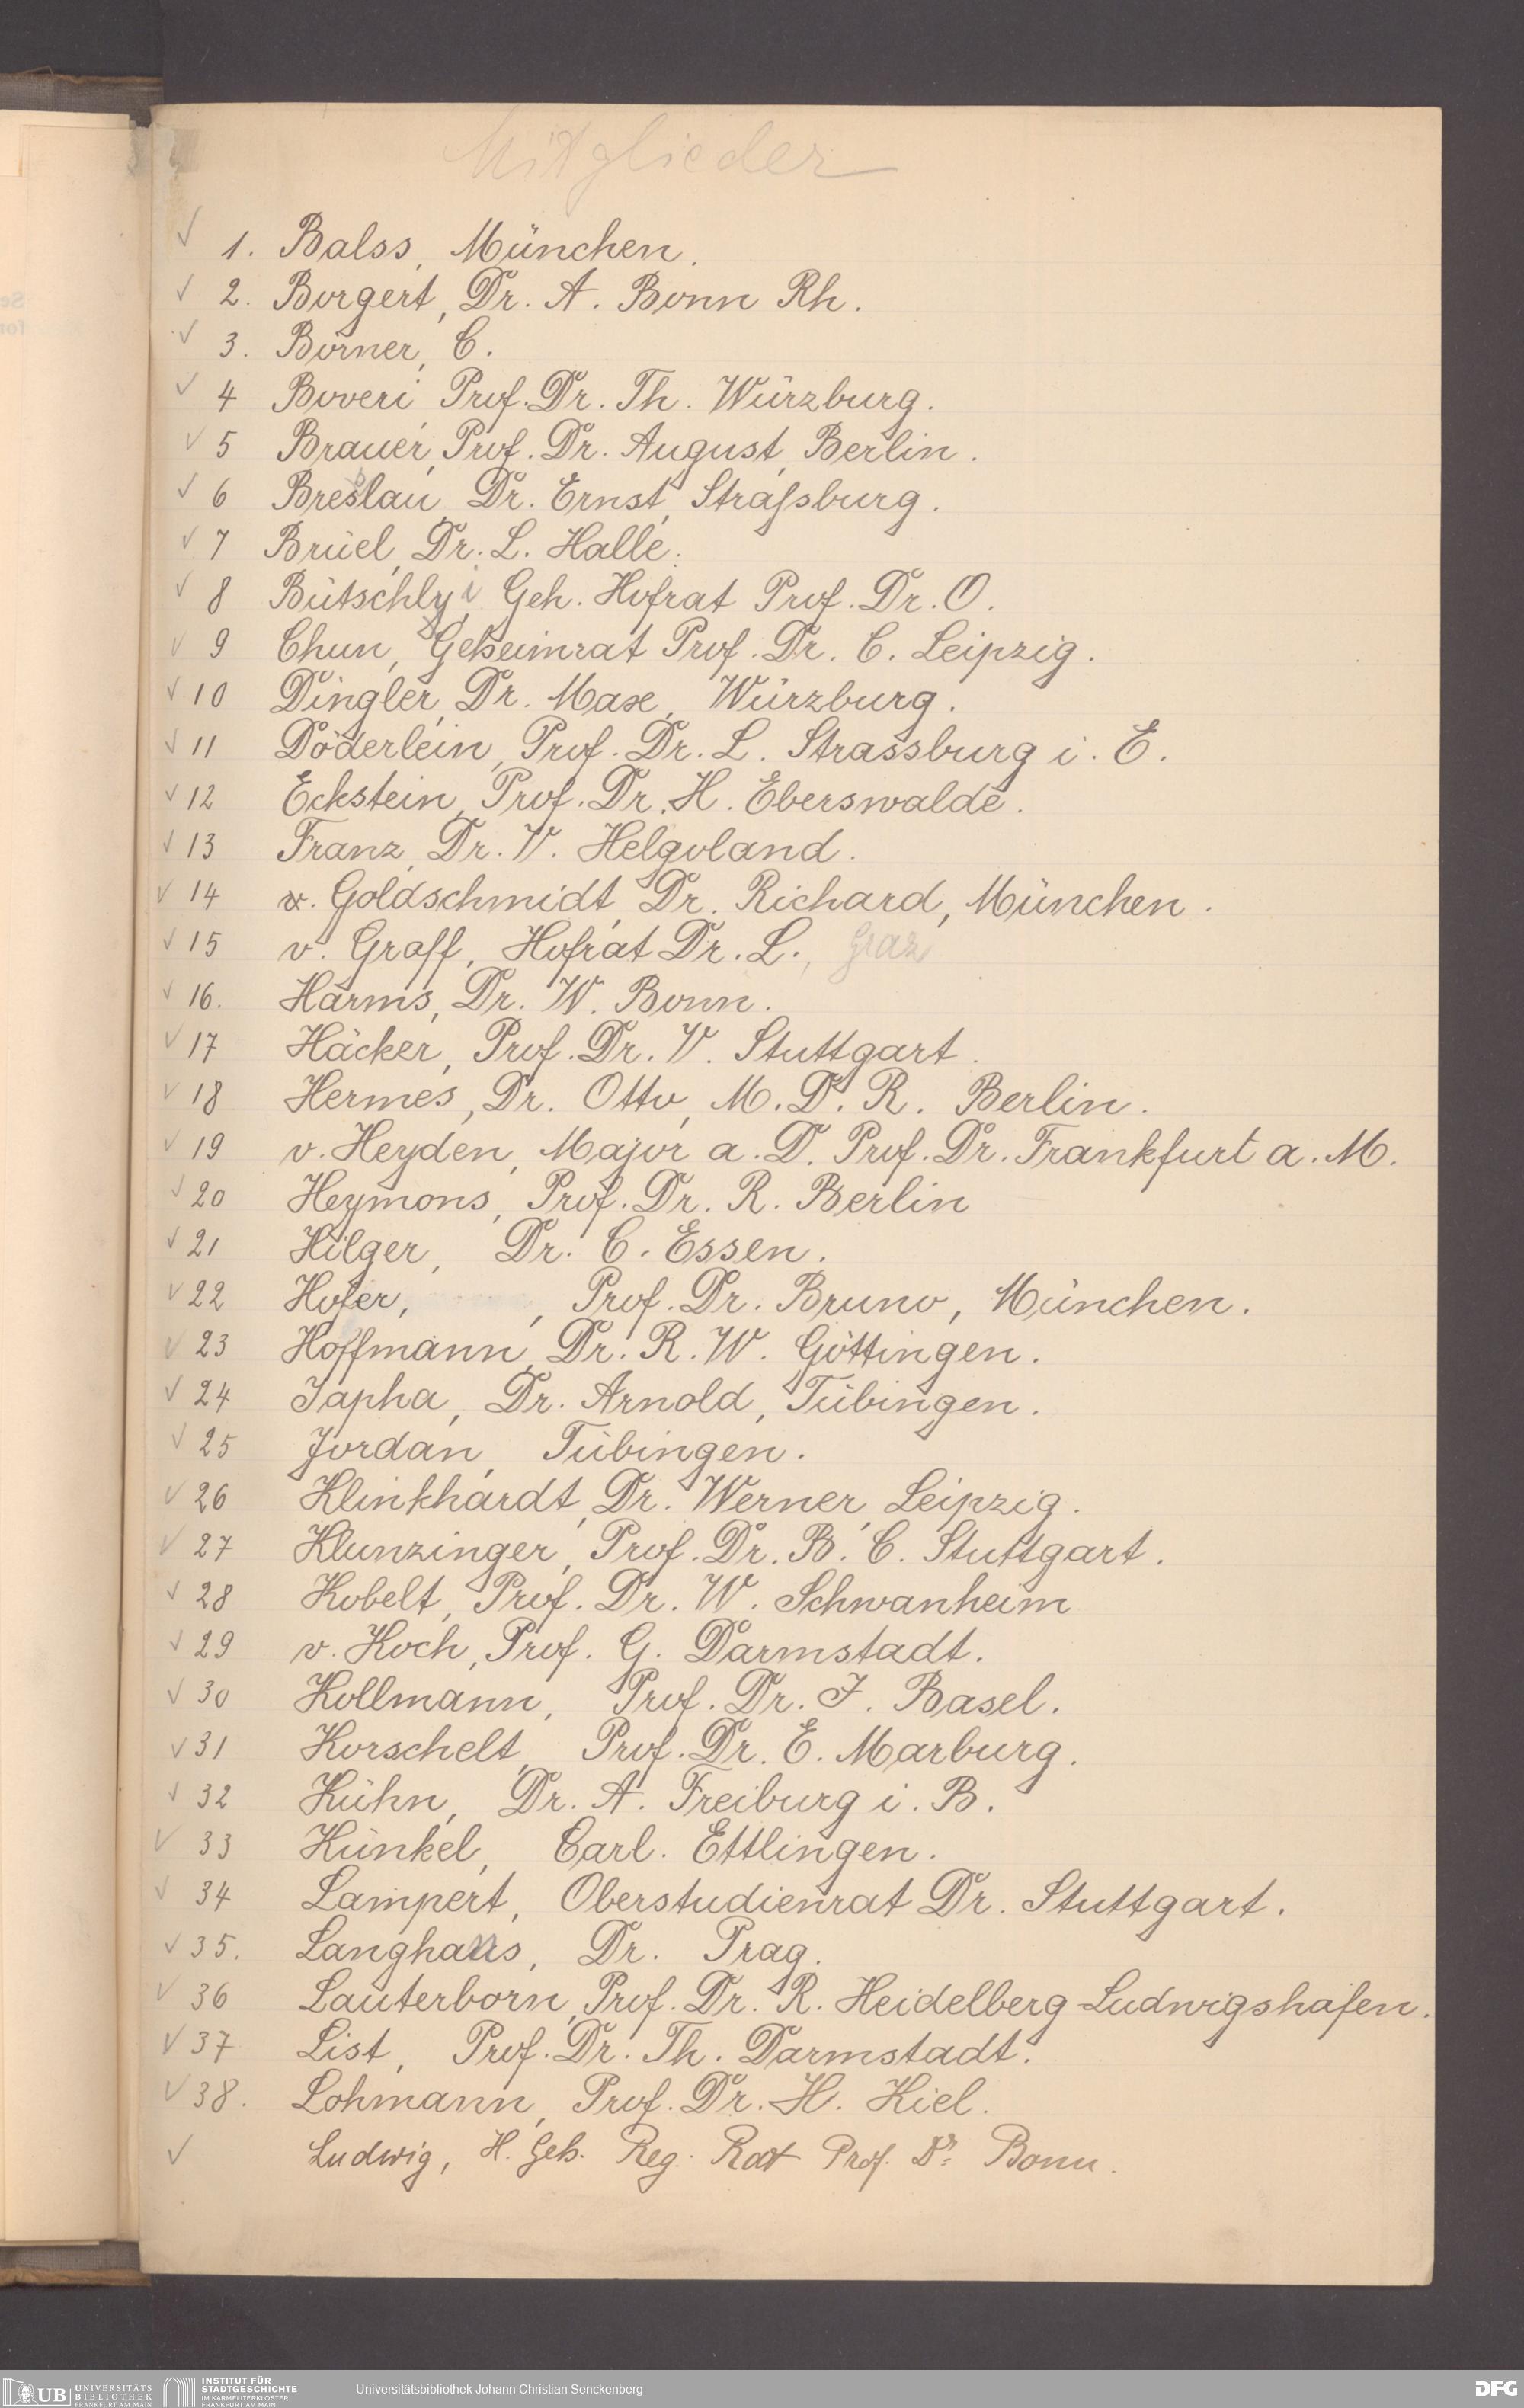 Mitglieder
✓ 1. Balss, München.
✓ 2. Borgert, Dr. A. Bonn Rh.
✓ 3. Börner, C.
✓ 4 Boveri Prof. Dr. Th. Würzburg.
✓ 5 Brauer, Prof. Dr. August, Berlin.
✓ 6 Breslau, Dr. Ernst, Straßsburg.
✓ 7 Brüel, Dr. L. Halle.
✓ 8 Bütschlyi, Geh. Hofrat Prof. Dr. O.
✓ 9 Chun, Geheimrat Prof. Dr. C. Leipzig.
✓ 10 Dingler, Dr. Max, Würzburg.
✓ 11 Döderlein, Prof. Dr. L. Strassburg i. E.
✓ 12 Eckstein, Prof. Dr. H. Eberswalde.
✓ 13 Franz, Dr. V. Helgoland.
✓ 14 v. Goldschmidt, Dr. Richard, München.
✓ 15 v. Graff, Hofrat Dr. L., Graz
✓ 16. Harms, Dr. W. Bonn.
✓ 17 Häcker, Prof. Dr. V. Stuttgart.
✓ 18 Hermes, Dr. Otto, M. D. R. Berlin.
✓ 19 v. Heyden, Major a. D. Prof. Dr. Frankfurt a. M.
✓ 20 Heymons, Prof. Dr. R. Berlin
✓ 21 Hilger, Dr. C. Essen.
✓ 22 Hofer, , Prof. Dr. Bruno, München.
✓ 23 Hoffmann, Dr. R. W. Göttingen.
✓ 24 Japha, Dr. Arnold, Tübingen.
✓ 25 Jordan, Tübingen.
✓ 26 Klinkhardt, Dr. Werner, Leipzig.
✓ 27 Klunzinger, Prof. Dr. B. C. Stuttgart.
✓ 28 Kobelt, Prof. Dr. W. Schwanheim
✓ 29 v. Koch, Prof. G. Darmstadt.
✓ 30 Kollmann, Prof. Dr. J. Basel.
✓ 31 Korschelt, Prof. Dr. E. Marburg.
✓ 32 Kühn, Dr. A. Freiburg i. B.
✓ 33 Künkel, Carl. Ettlingen.
✓ 34 Lampert, Oberstudienrat Dr. Stuttgart.
✓ 35. Langhans, Dr. Prag.
✓ 36 Lauterborn, Prof. Dr. R. Heidelberg-Ludwigshafen.
✓ 37 List, Prof. Dr. Th. Darmstadt.
✓ 38. Lohmann, Prof. Dr. H. Kiel.
✓ Ludwig, H. Geh. Reg. Rat Prof. Dr. Bonn.
UB UNIVERSITÄTS BIBLIOTHEK FRANKFURT AM MAIN
INSTITUT FÜR STADTGESCHICHTE IM KARMELITERKLOSTER FRANKFURT AM MAIN
Universitätsbibliothek Johann Christian Senckenberg
DFG